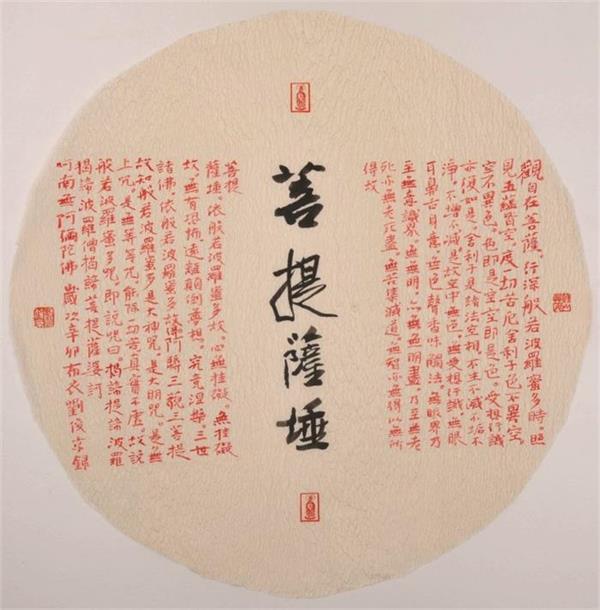 觀自在菩薩。行深般若波羅蜜多時。照
見五蘊皆空。度一切苦厄。舍利子。色不異空。
空不異色。色即是空。空即是色。受想行識
亦復如是。舍利子是諸法空相。不生不滅。不垢不
淨。不增不減。是故空中無色。無受想行識。無眼
耳鼻舌身意。無色聲香味觸法。無眼界乃
至無意識界。無無明。亦無無明盡。乃至無老
死。亦無老死盡。無苦集滅道。無智亦無得。以無所
得故
菩提薩埵
菩提
薩埵。依般若波羅蜜多故。心無挂礙。無挂礙
故。無有恐怖。遠離顛倒夢想。究竟涅槃。三世
諸佛。依般若波羅蜜多故得阿耨三藐三菩提
故知般若波羅蜜多是大神咒。是大明咒。是無
上咒。是無等等咒。能除一切苦。真實不虛。故說
般若波羅蜜多咒。即說咒曰。揭諦揭諦波羅
揭諦波羅僧揭諦菩提薩婆訶
南無阿彌陀佛 歲次辛卯布衣劉俊京錄